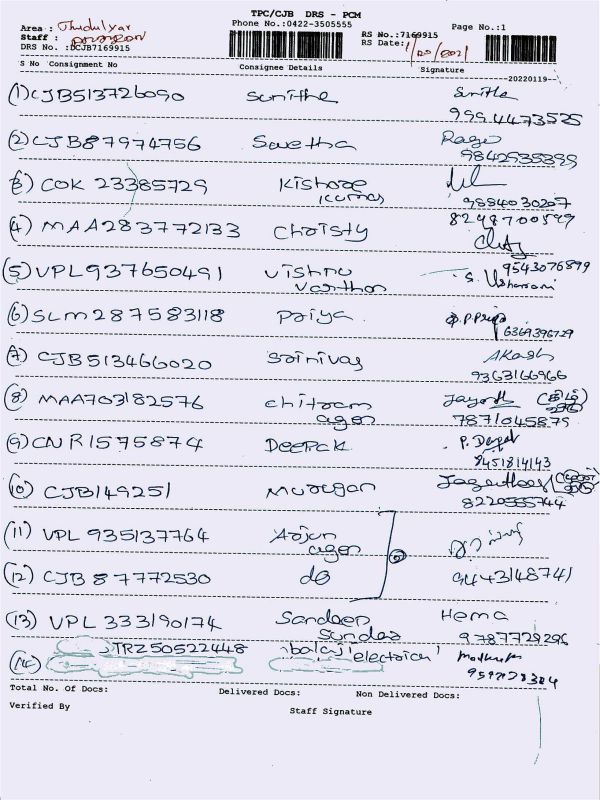 TPC/CJB DRS - PCM
Phone No.:0422-3505555
Page No.:1
Area : Thudulyar
Staff :
DRS No. :DCJB7169915
RS No.:7169915
RS Date: 1/20/2021
S No Consignment No Consignee Details Signature
20220119
(1) CJB513726090 Sunitha Sunitha
9994473525
(2) CJB87974756 Swetha Ragu
9842935399
(3) COK 23385729 Kishore
Kumar 9884030207
(4) MAA283772133 Christy 8248700599
(5) VPL937650491 Vishnu 9543076899
Varthan
(6) SLM287583118 Priya P.P.Priya
6369396729
(7) CJB513466020 Srinivas Akash
9363166966
(8) MAA703182576 Chitram
agen 7871045879
(9) CNR1575874 Deepak P. Deepak
8451814143
(10) CJB149251 Murugan
8220555744
(11) VPL 935137764 Arjun
agen
(12) CJB87772530 do 9443148741
(13) VPL 333190174 Sandeep Hema
Sundar 9787729296
(14) TRZ50522448 balaji electrical
Total No. Of Docs: Delivered Docs: Non Delivered Docs:
Verified By Staff Signature